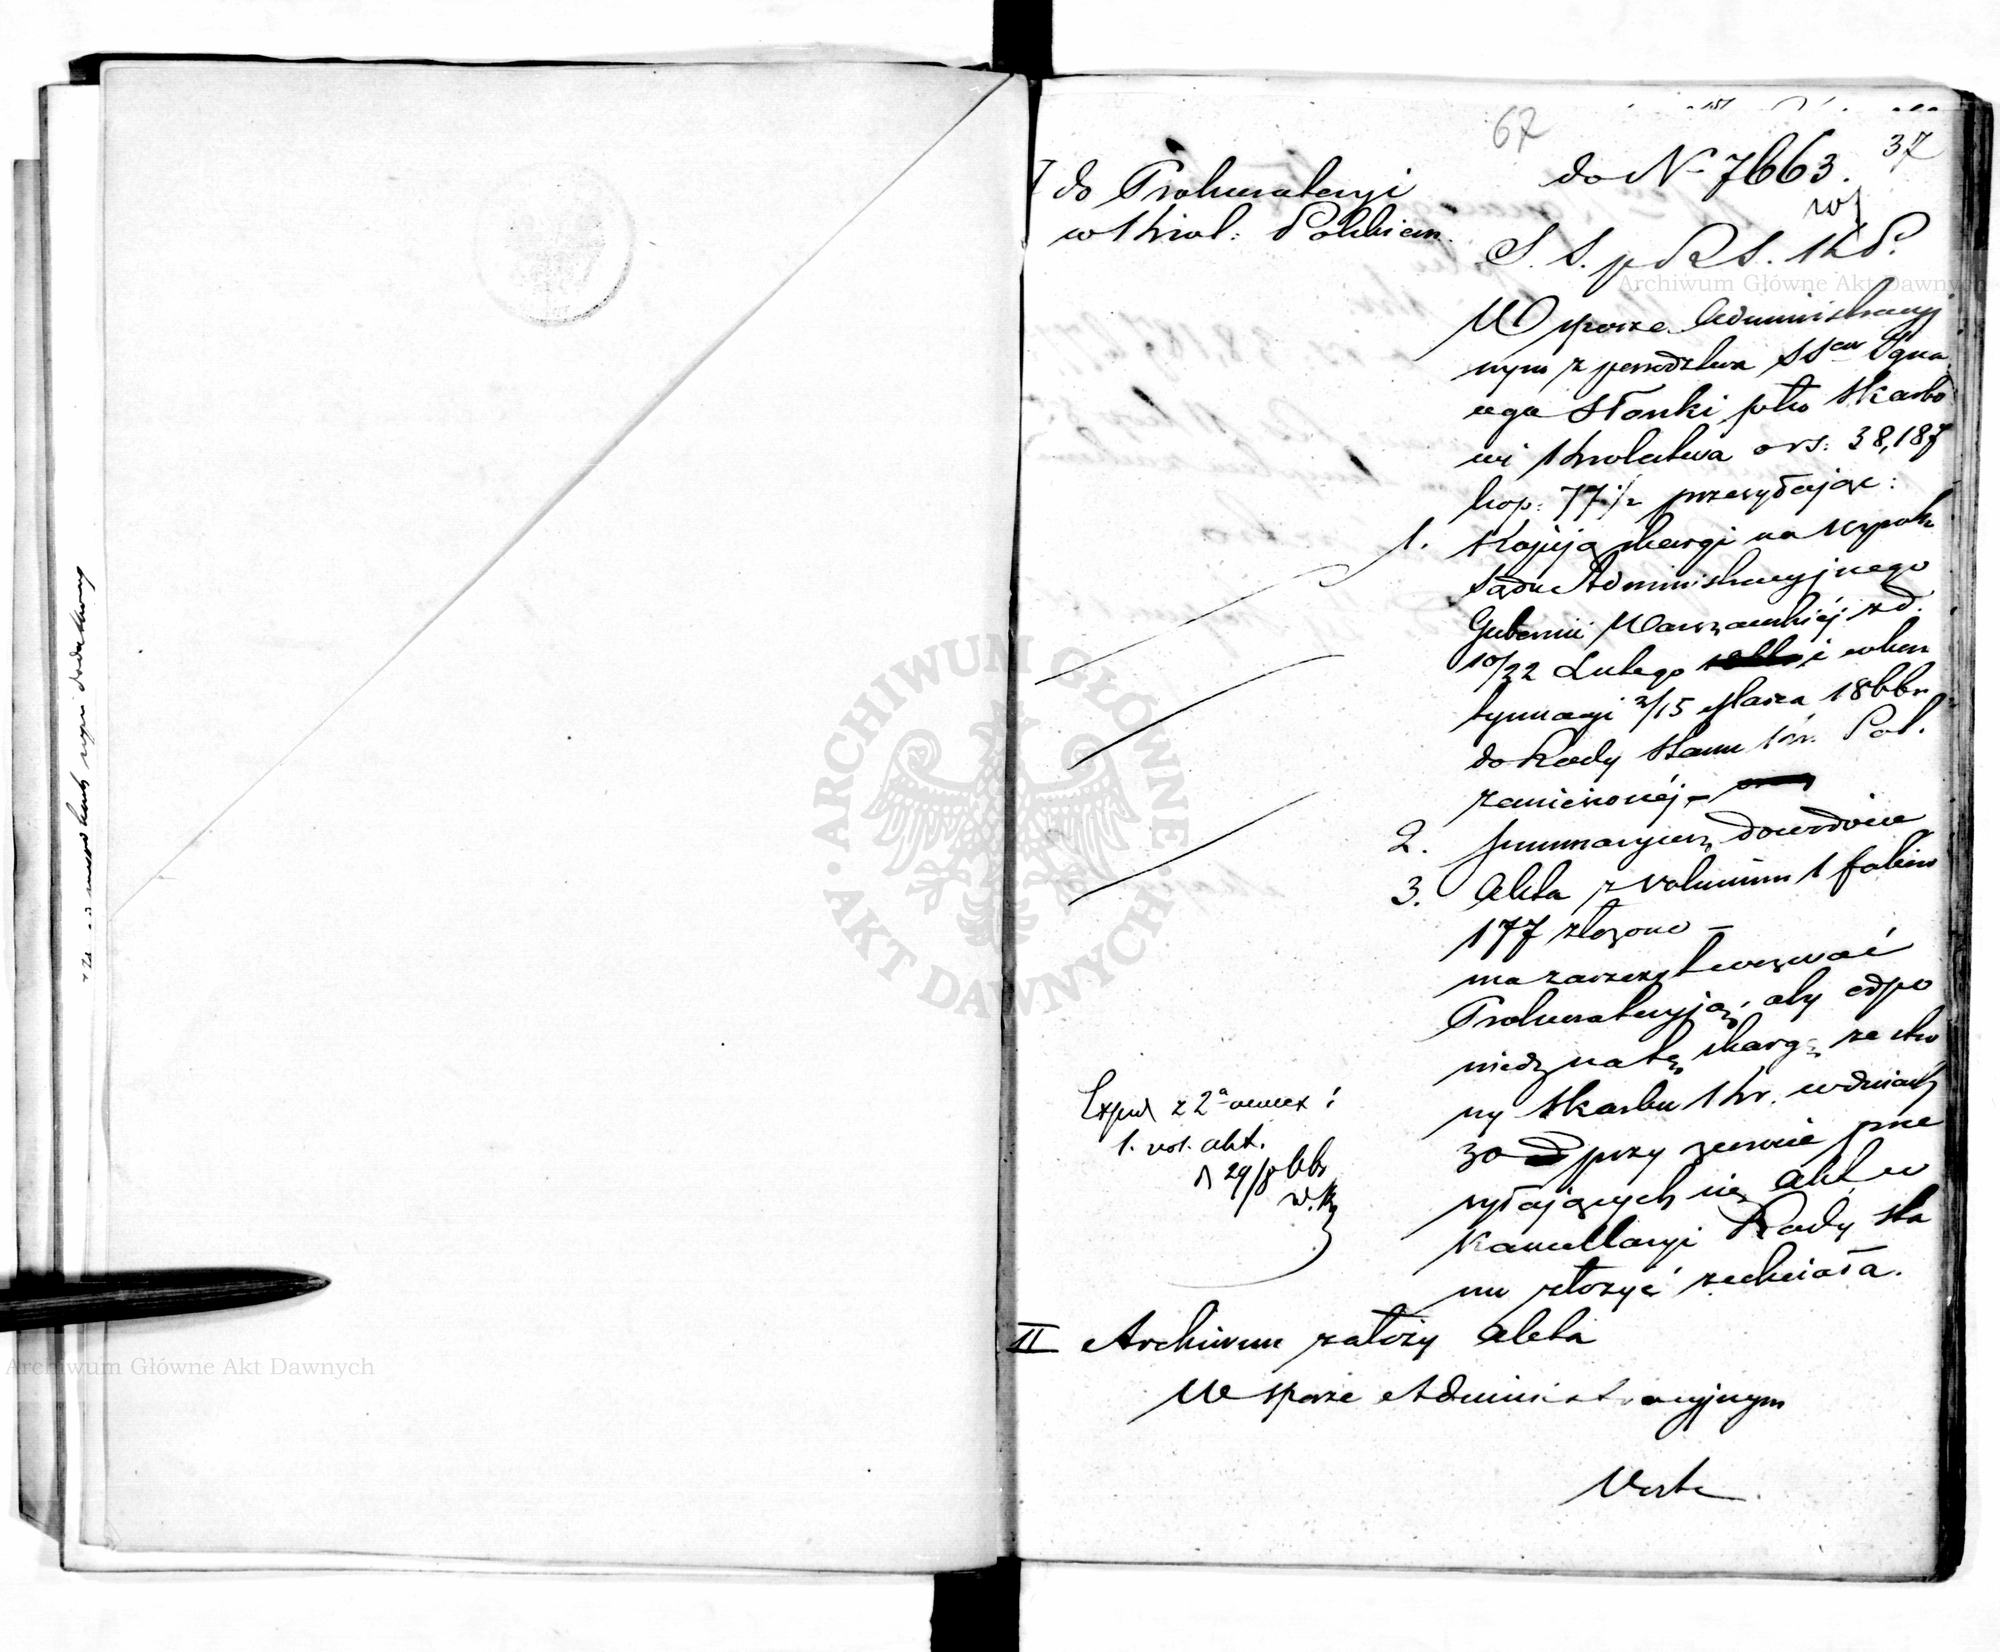 67
37
do N 7663.
I do Prokuratoryi
w Król: Polskiem.
S. S. p R S. K P.
W sporze Administracyj
nym z powództwa SSów Igna
cego Słonki pko Skarbo
wi Królestwa o rs: 38,187
kop: 77 1/2 przesyłając:
1. Kopiją skargi na wyrok
Sądu Administracyjnego
Gubernii Warszawskiéj z d.
10/22 Lutego i
3/15 Marca 1866 r.
do Rady Stanu Kr. Pol.
zaniesionéj
2. Summaryusz dowodów
3. Akta z volumim 1 foliów
177 złożone –
ma zaszczyt wezwać
Prokuratoryją, aby odpo
wiedź na tę skargę ze stro
ny Skarbu Kr. w dniach
30 przy zwrocie prze
syłających się aktów
w Kancellaryi Rady Sta
nu złożyć zechciała.
Exped z 2 annex:
1. vol. akt.
d 29/8 66
II Archiwum założy akta
W sporze Administracyjnym
ARCHIWUM GŁÓWNE
AKT DAWNYCH
Archiwum Główne Akt Dawnych
Archiwum Główne Akt Dawnych